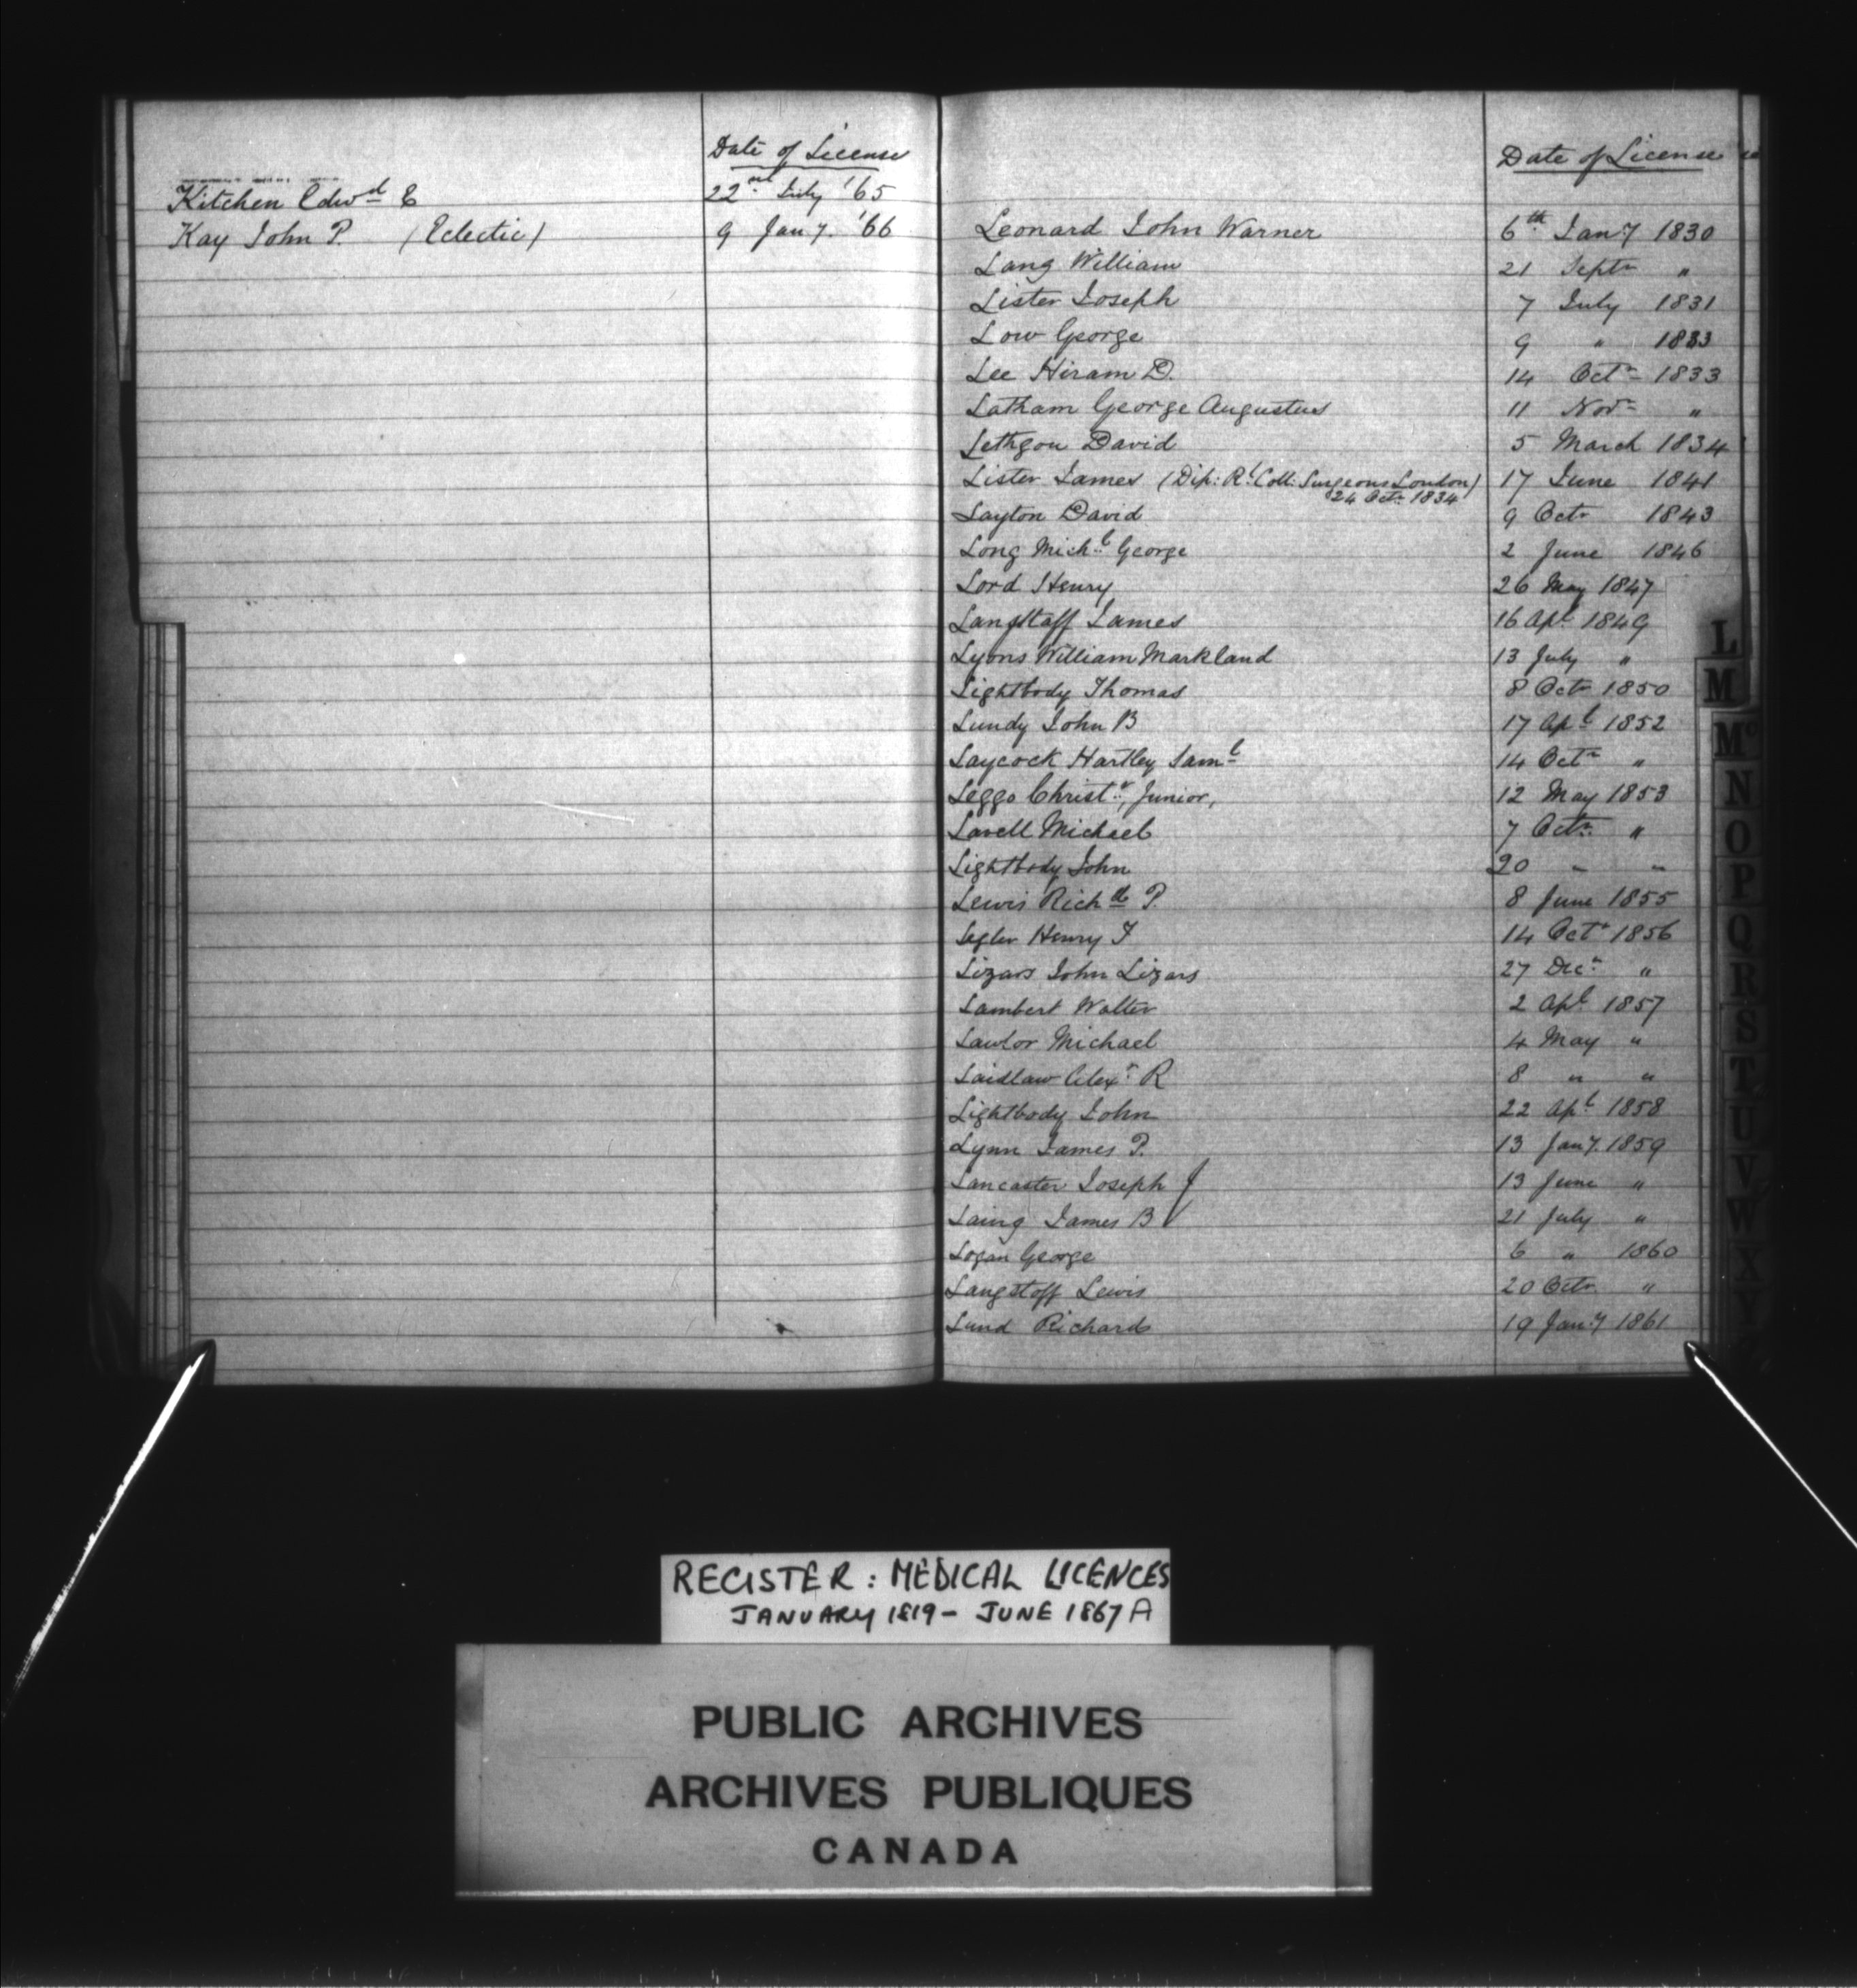 Date of License
Kitchen Edwd E 22nd July '65
Kay John P. (Eclectic) 9 Jany. '66
Date of License
Leonard John Warner 6th Jany 1830
Lang William 21 Septr "
Lister Joseph 7 July 1831
Low George 9 " 1833
Lee Hiram D. 14 Octr 1833
Latham George Augustus 11 Novr "
Lethgou David 5 March 1834
Lister James (Dip: Rl. Coll: Surgeons London) 17 June 1841
24 Octr 1834
Layton David 9 Octr 1843
Long Michl George 2 June 1846
Lord Henry 26 May 1847
Langstaff James 16 Apl 1849
Lyons William Markland 13 July "
Lightbody Thomas 8 Octr 1850
Lundy John B 17 Apl 1852
Laycock Hartley Saml 14 Octr "
Leggo Christr, Junior, 12 May 1853
Lavell Michael 7 Octr "
Lightbody John 20 " "
Lewis Richd P. 8 June 1855
Henry 14 Octr 1856
Lizars John Lizars 27 Decr "
Lambert Walter 2 Apl 1857
Lawlor Michael 4 May "
Laidlaw Alexr R 8 " "
Lightbody John 22 Apl 1858
Lynn James P. 13 Jany. 1859
Lancaster Joseph J 13 June "
Laing James B 21 July "
Logan George 6 " 1860
Langstaff Lewis 20 Octr "
Lund Richard 19 Jany 1861
L
M
Mc
N
O
P
Q
R
S
T
U
V
W
X
Y
REGISTER: MEDICAL LICENCES
JANUARY 1819 - JUNE 1867 A
PUBLIC ARCHIVES
ARCHIVES PUBLIQUES
CANADA